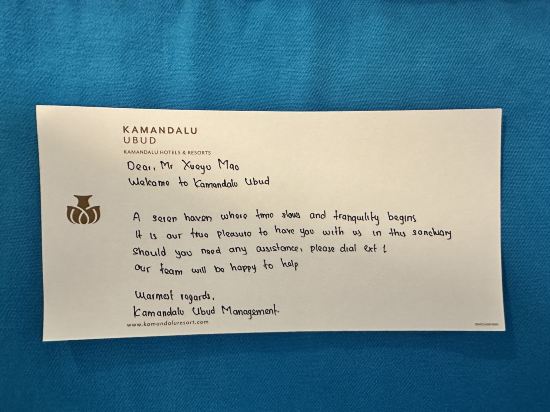 KAMANDALU
UBUD
KAMANDALU HOTELS & RESORTS
Dear, Mr Xueyu Mao
Welcome to Kamandalu Ubud
A seren haven where time slows and tranquility begins
It is our true pleasure to have you with us in this sanctuary
Should you need any assistance, please dial ext 1
our team will be happy to help
Warmest regards,
Kamandalu Ubud Management.
www.kamandaluresort.com